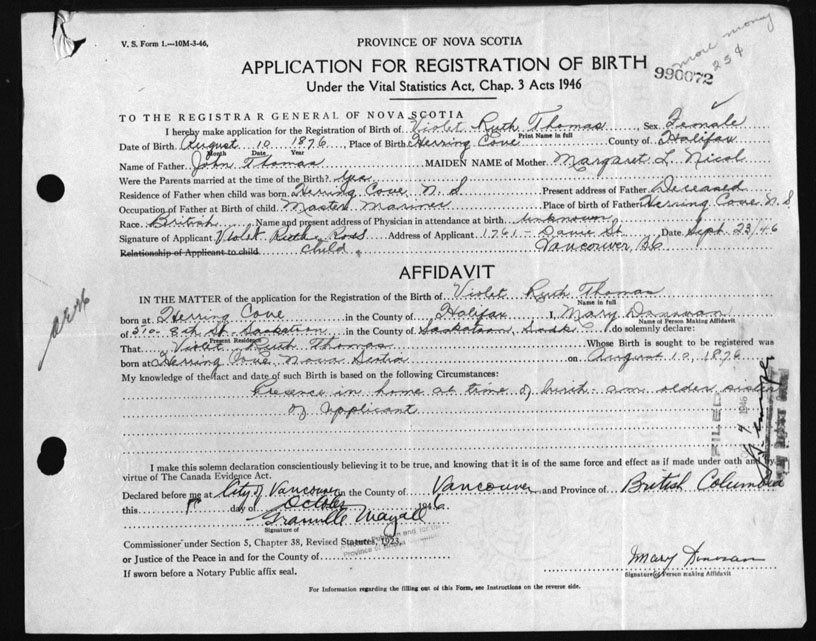 V. S. Form 1.—10M-3-46,
PROVINCE OF NOVA SCOTIA
more money
25¢
APPLICATION FOR REGISTRATION OF BIRTH
990072
Under the Vital Statistics Act, Chap. 3 Acts 1946
TO THE REGISTRAR GENERAL OF NOVA SCOTIA
I hereby make application for the Registration of Birth of Violet Ruth Thomas, Sex Female
Print Name in full
Date of Birth August 10 1876, Place of Birth Herring Cove County of Halifax
Month Date Year
Name of Father John Thomas MAIDEN NAME of Mother Margaret L. Nicol
Were the Parents married at the time of the Birth? Yes
Residence of Father when child was born Herring Cove, N. S Present address of Father Deceased
Occupation of Father at Birth of child Master Mariner Place of birth of Father Herring Cove N. S
Race British Name and present address of Physician in attendance at birth unknown
Signature of Applicant Violet Ruthe Ross Address of Applicant 1761 - Davie St Date Sept 23/46
Relationship of Applicant to child Child Vancouver, BC
AFFIDAVIT
IN THE MATTER of the application for the Registration of Birth of Violet Ruth Thomas
Name in full
born at Herring Cove in the County of Halifax I, Mary Donovan
Name of Person Making Affidavit
of 8th St. Saskatoon in the County of Saskatoon, Sask do solemnly declare:
Present Residence
That Violet Ruth Thomas Whose Birth is sought to be registered was
born at Herring Cove, Nova Scotia on August 10, 1876
My knowledge of the fact and date of such Birth is based on the following Circumstances:
in home at time of birth - am older sister
of applicant
FILED
1946
I make this solemn declaration conscientiously believing it to be true, and knowing that it is of the same force and effect as if made under oath and by
virtue of The Canada Evidence Act.
Declared before me at City of Vancouver in the County of Vancouver and Province of British Columbia
this day of October 1946
Granville Mayall
Signature of
Commissioner under Section 5, Chapter 38, Revised Statutes, 1923,
or Justice of the Peace in and for the County of
If sworn before a Notary Public affix seal.
Mary Donovan
Signature of Person making Affidavit
For Information regarding the filling out of this Form, see Instructions on the reverse side.